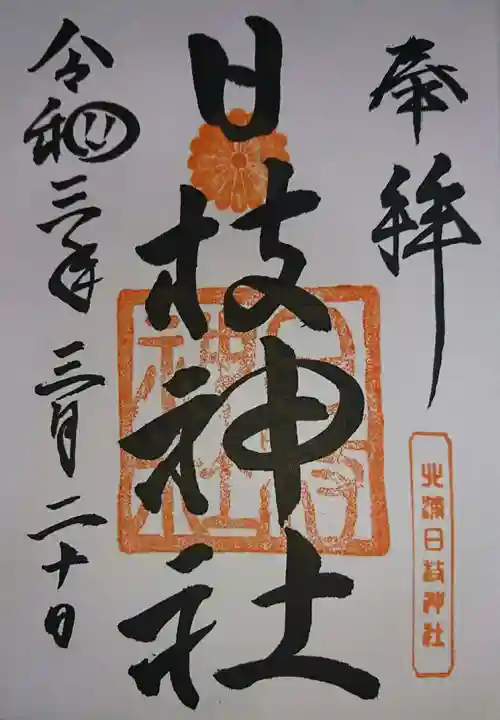 奉拝
北浦日枝神社
日枝神社
日枝神社
令和三年三月二十日